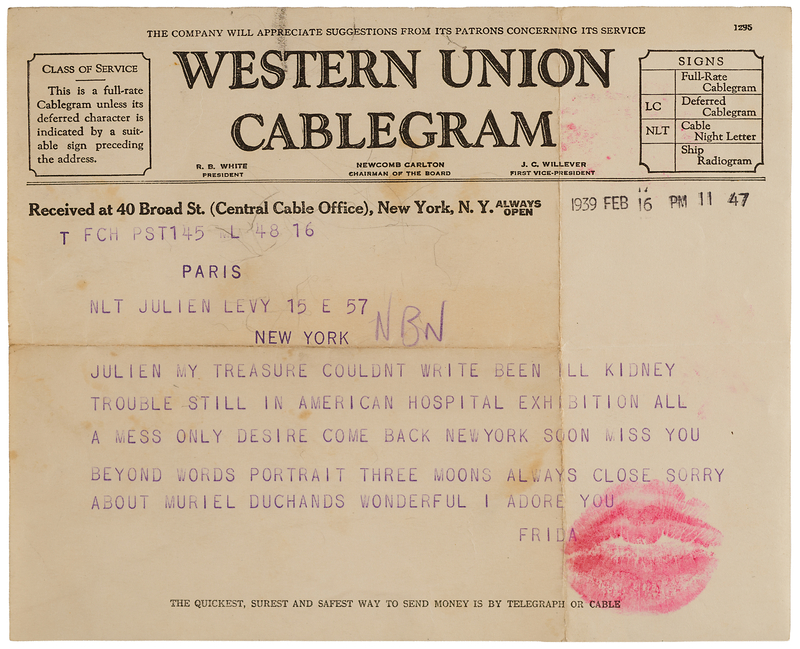 THE COMPANY WILL APPRECIATE SUGGESTIONS FROM ITS PATRONS CONCERNING ITS SERVICE
1295
CLASS OF SERVICE
This is a full-rate
Cablegram unless its
deferred character is
indicated by a suit-
able sign preceding
the address.
WESTERN UNION
CABLEGRAM
R. B. WHITE
PRESIDENT
NEWCOMB CARLTON
CHAIRMAN OF THE BOARD
J. C. WILLEVER
FIRST VICE-PRESIDENT
SIGNS
Full-Rate
Cablegram
LC Deferred
Cablegram
NLT Cable
Night Letter
Ship
Radiogram
Received at 40 Broad St. (Central Cable Office), New York, N. Y. ALWAYS OPEN
1939 FEB 16 PM 11 47
T FCH PST145 WL 48 16
PARIS
NLT JULIEN LEVY 15 E 57
NEW YORK
NBN
JULIEN MY TREASURE COULDNT WRITE BEEN ILL KIDNEY
TROUBLE STILL IN AMERICAN HOSPITAL EXHIBITION ALL
A MESS ONLY DESIRE COME BACK NEWYORK SOON MISS YOU
BEYOND WORDS PORTRAIT THREE MOONS ALWAYS CLOSE SORRY
ABOUT MURIEL DUCHANDS WONDERFUL I ADORE YOU
FRIDA
THE QUICKEST, SUREST AND SAFEST WAY TO SEND MONEY IS BY TELEGRAPH OR CABLE